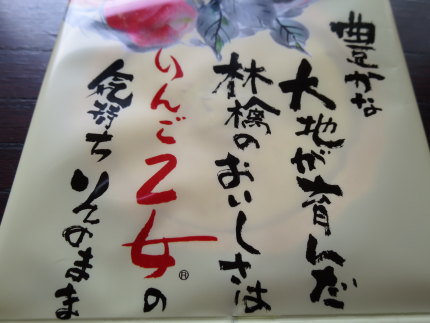 豊かな
大地が育んだ
林檎のおいしさは
りんご乙女®の
気持ち そのまま